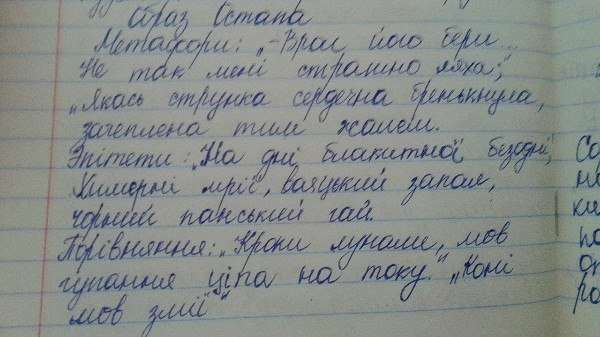 Образ Остапа
Метафори: „-Враг його бери...
Не так мені страшно ляха;"
„Якась струнка сердечна бренькнула,
зачеплена тим жалем.
Епітети: „На дні блакитної безодні,
Химерні мрії, вояцький запал,
чорний панський гай.
Порівняння: „Кроки лунали, мов
гупання ціпа на току." „Коні
мов змії"